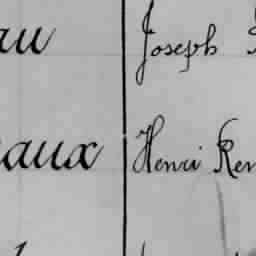 au Joseph
aux Henri Ren